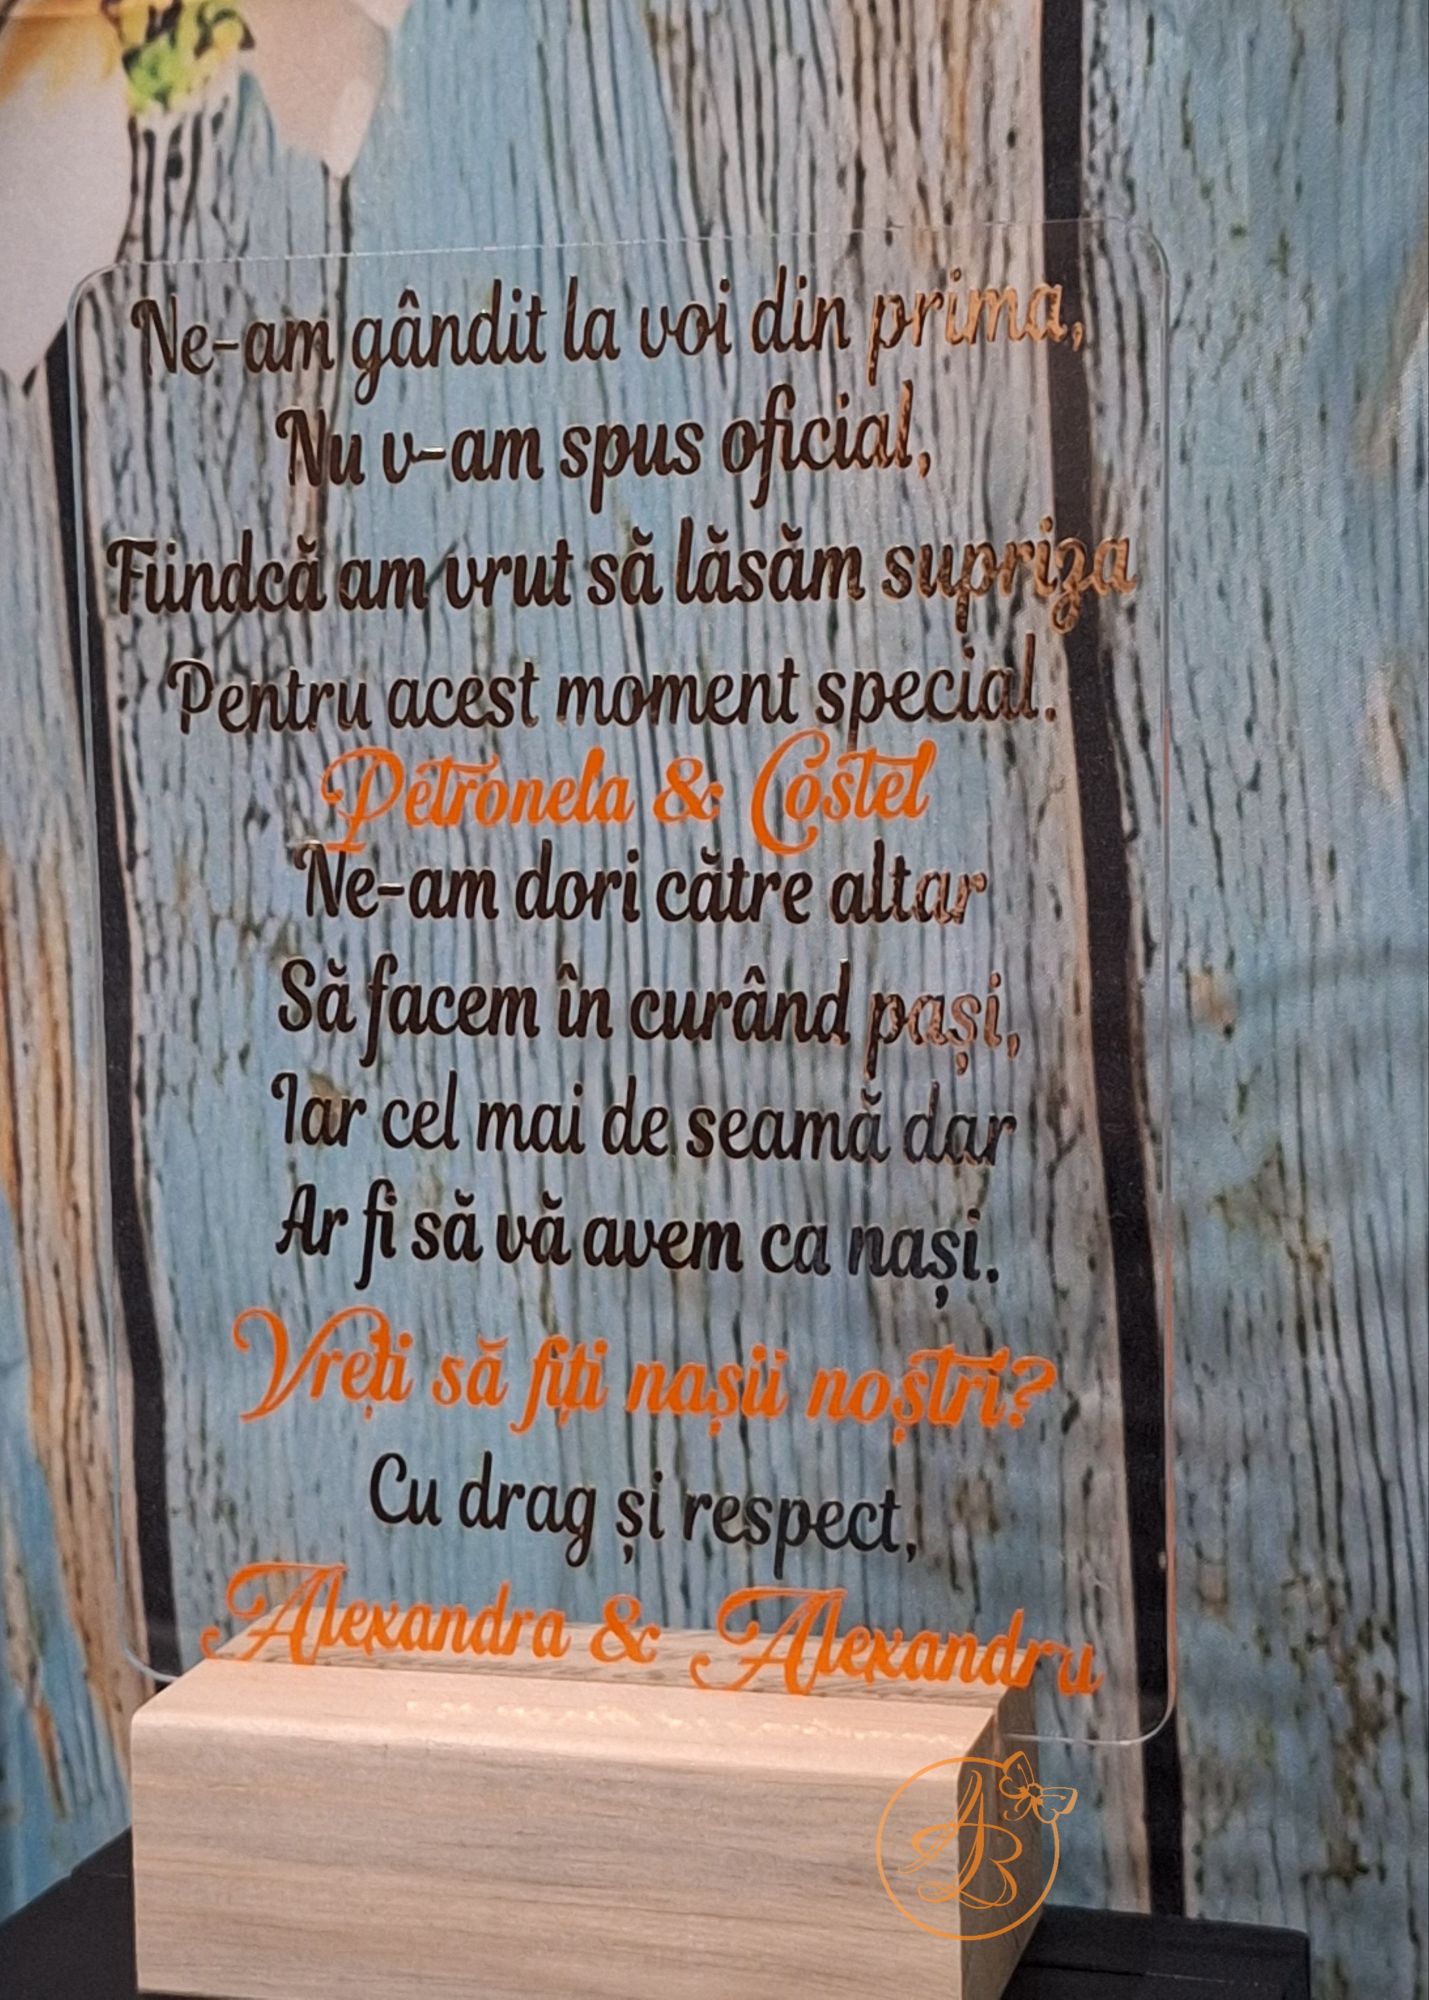 Ne-am gândit la voi din prima,
Nu v-am spus oficial,
Fiindcă am vrut să lăsăm supriza
Pentru acest moment special.
Petronela & Costel
Ne-am dori către altar
Să facem în curând pași,
Iar cel mai de seamă dar
Ar fi să vă avem ca nași.
Vreți să fiți nașii noștri?
Cu drag și respect,
Alexandra & Alexandru
AB